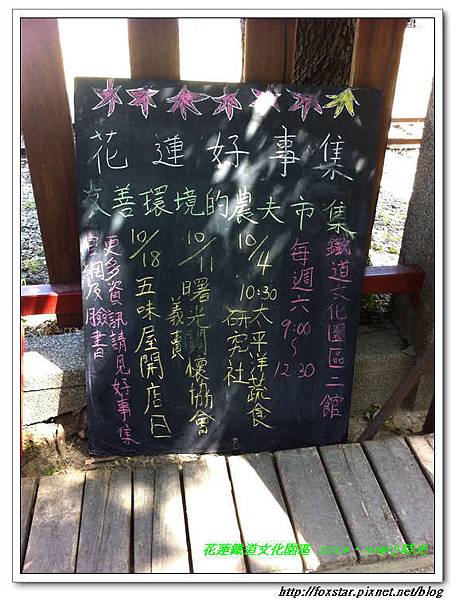 花蓮好事集
友善環境的農夫市集
鐵道文化園區二館
每週六 9:00~12:30
10/4 10:30 太平洋蔬食研究社
10/11 曙光關懷協會義賣
10/18 五味屋開店日
更多資訊請見好事集
官網及臉書
花蓮鐵道文化園區
http://foxstar.pixnet.net/blog